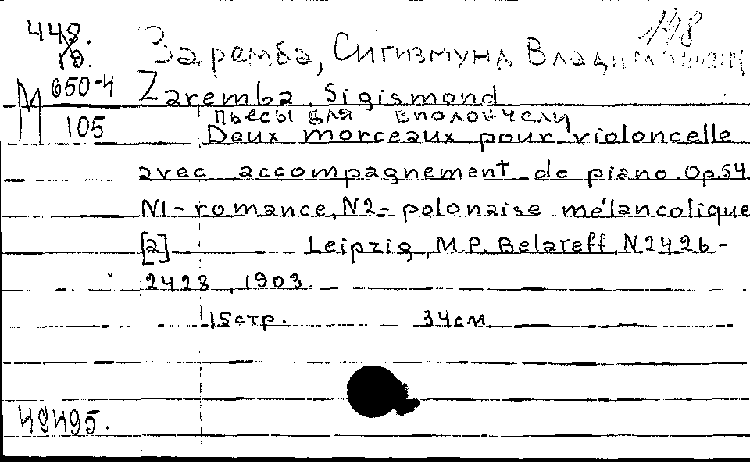 448.
18.
198
Заремба, Сигизмунд Владимирович
М 650-4
105
Zaremba, Sigismond
пьесы для виолончели
Deux morceaux pour violoncelle
avec accompagnement de piano. Op.54
N1- romance, N2- polonaise mélancolique
[2] Leipzig, M.P. Belaieff, N2426-
2423, 1903.
15стр. 34см
49495.